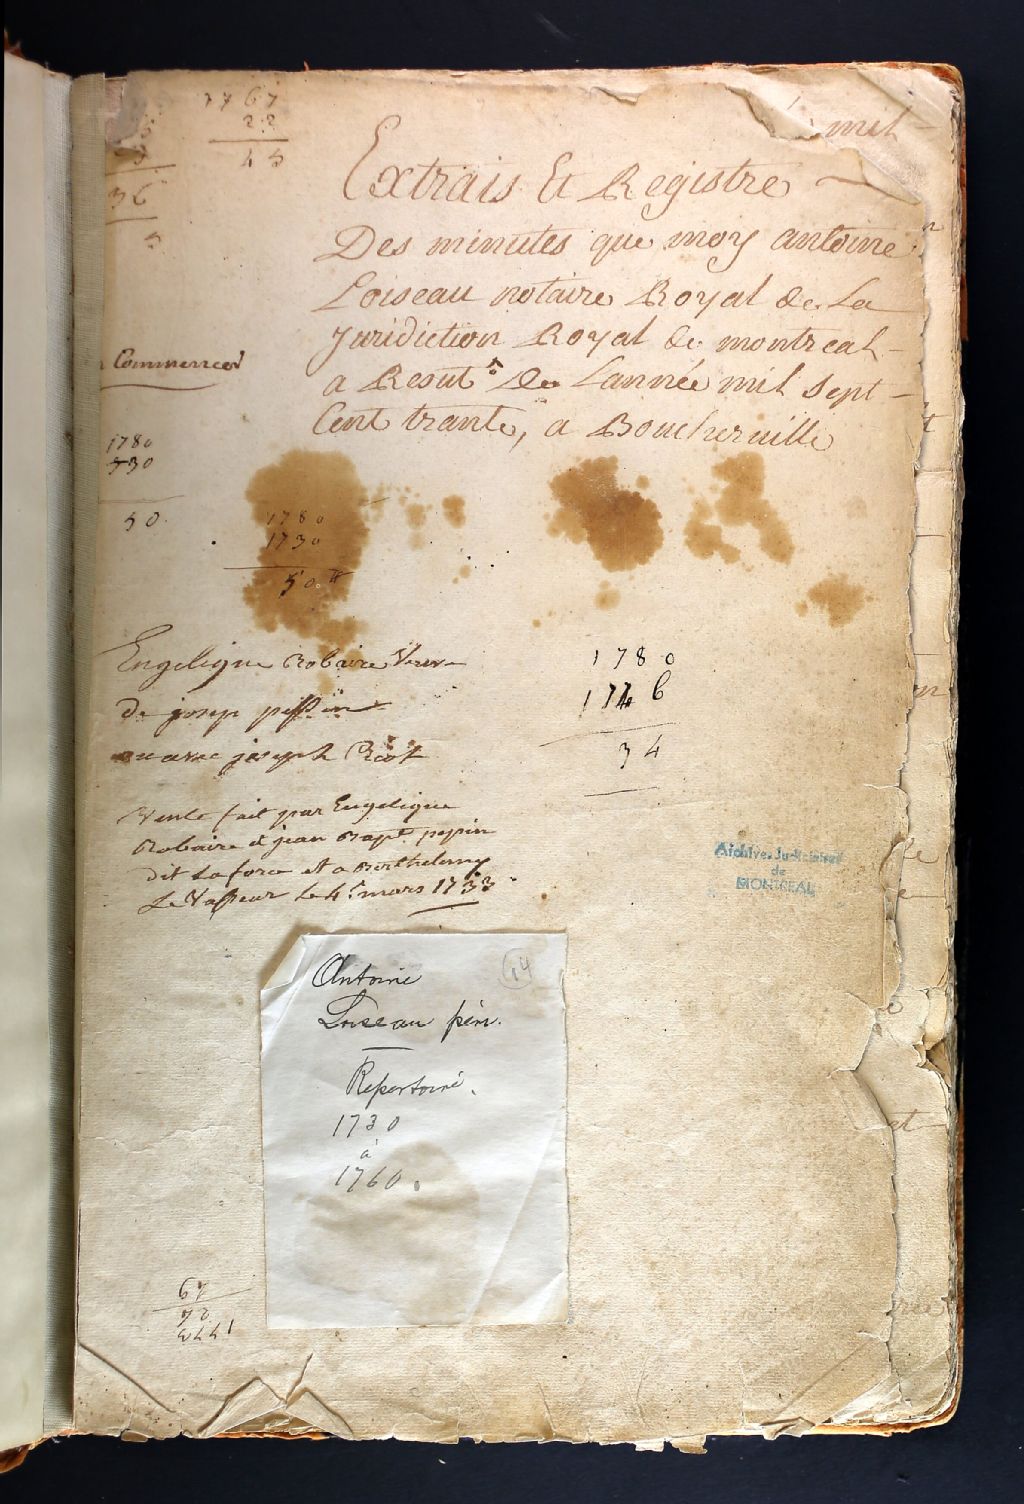 1767
22
45
36
mil
Extrais Et Registre
Des minutes que moy antoine
Loiseau notaire Royal de La
Juridiction Royal de montreal
a Resut^s De Lannée mil sept
Cent trante, a Boucherville
Commencer
1780
730
50
1780
1730
50
Engelique Robaire Veuve
De josep pepin
joseph Riot
1780
1746
34
Vente fait par Engelique
Robaire et jean Bapt^e pepin
dit Laforce et a Berthelemy
Le Vasseur le 4^e mars 1733
Archives Judiciaires
de
MONTREAL
Antoine
Loiseau père.
Repertoire.
1730
à
1760.
14